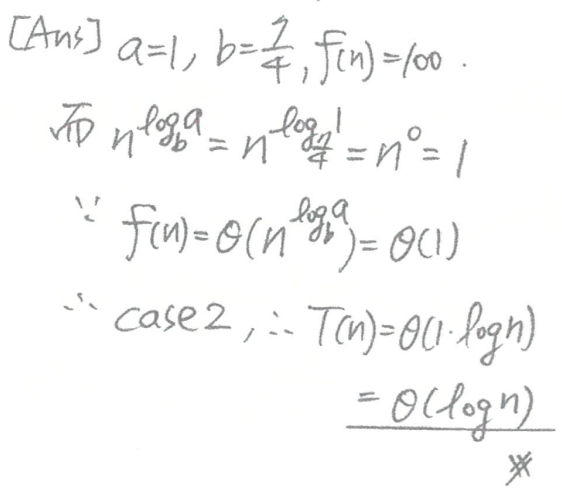 [Ans] a=1, b=7/4, f(n)=100.
而 n^{log_b a} = n^{log_{7/4} 1} = n^0 = 1
∵ f(n)=θ(n^{log_b a})=θ(1)
∴ case2, ∴ T(n)=θ(1·log n)
=θ(log n)
※